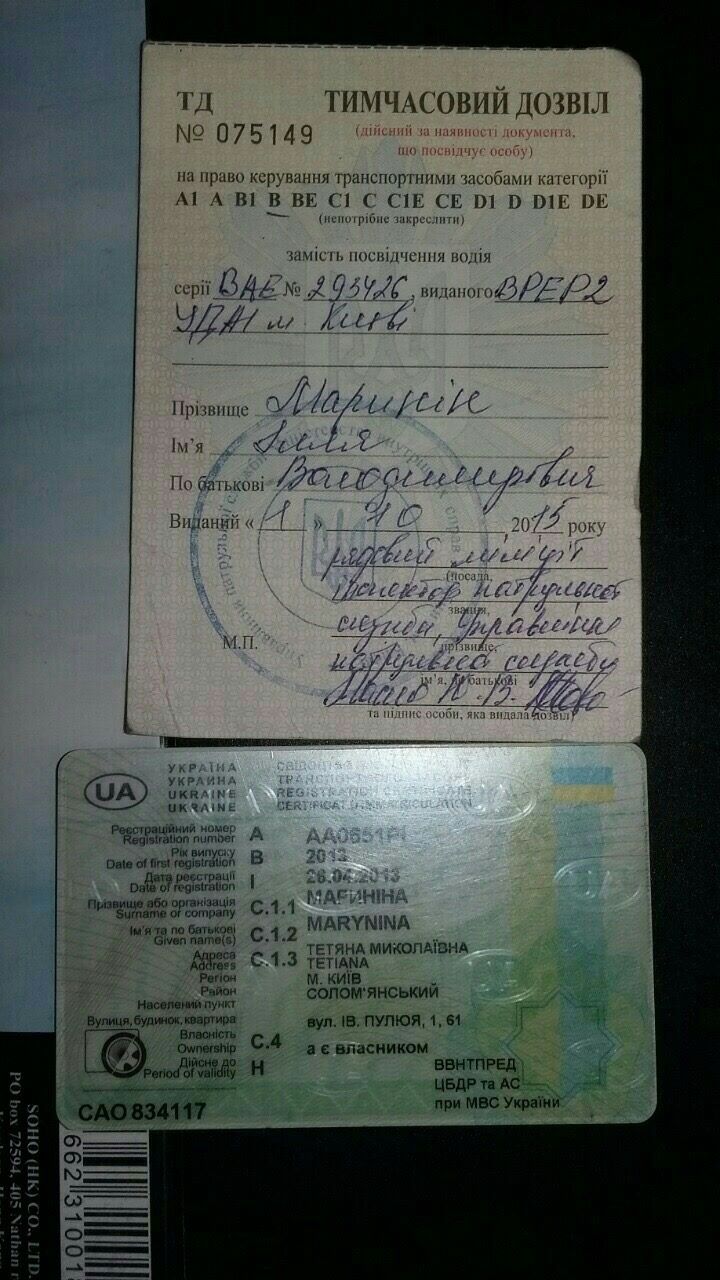 ТД ТИМЧАСОВИЙ ДОЗВІЛ
№ 075149 (дійсний за наявності документа,
що посвідчує особу)
на право керування транспортними засобами категорії
А1 А В1 В ВЕ С1 С С1Е СЕ D1 D D1E DE
(непотрібне закреслити)
замість посвідчення водія
серії ВАЕ № 293426, виданого ВРЕР2
м Києві
Прізвище Маринін
Ім'я Ілля
По батькові Володимирович
Виданий « 1 » 10 2015 року
рядовий міліції
(посада,
інспектор патрульної
звання,
служби, Управління
прізвище,
М.П. служби
ім'я, по батькові
та підпис особи, яка видала дозвіл)
UA
УКРАЇНА
УКРАИНА ТРАНСПОРТНОГО
UKRAINE REGISTRATION CERTIFICATE
UKRAINE CERTIFICAT D'IMMATRICULATION
Реєстраційний номер A
Registration number
Рік випуску B 2013
Date of first registration
Дата реєстрації I 26.04.2013
Date of registration
Прізвище або організація C.1.1 МАРИНІНА
Surname or company MARYNINA
Ім'я та по батькові C.1.2 ТЕТЯНА МИКОЛАЇВНА
Given name(s) TETIANA
Адреса C.1.3
Address
Регіон М. КИЇВ
Район СОЛОМ'ЯНСЬКИЙ
Населений пункт
Вулиця, будинок, квартира вул. ІВ. ПУЛЮЯ, 1, 61
Власність C.4 а є власником
Ownership
Дійсне до H
Period of validity
ВВНТПРЕД
ЦБДР та АС
при МВС України
САО 834117
SOHO (HK) CO., LTD.
PO box 72594, 405 Nathan